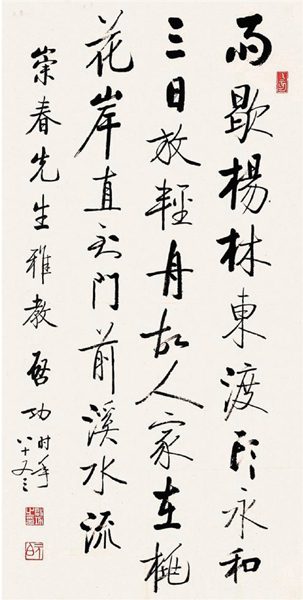 雨歇楊林東渡头永和
三日放輕舟故人家在桃
花岸直到門前溪水流
崇春先生雅教 啓功 时年
八十又三